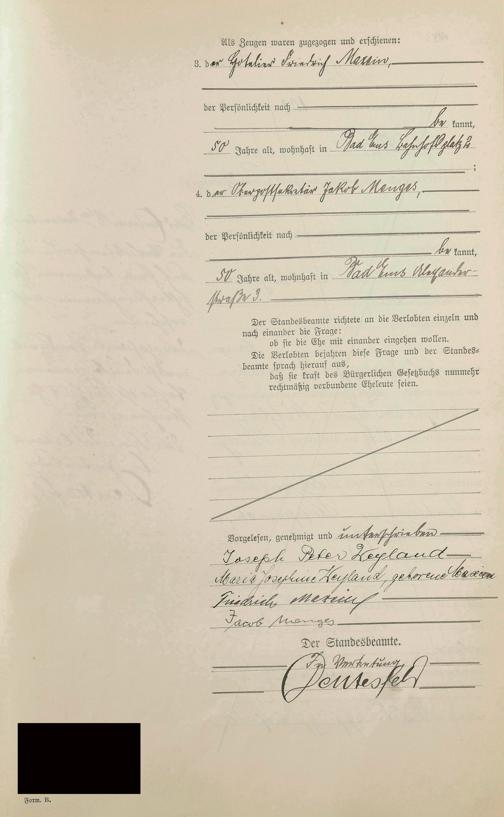 Als Zeugen waren zugezogen und erschienen:
3. der Hotelier Friedrich Massing,
der Persönlichkeit nach
be kannt,
50 Jahre alt, wohnhaft in Bad Ems Bahnhofsplatz
;
4. der Oberpostsekretär Jakob Menges,
der Persönlichkeit nach
be kannt,
50 Jahre alt, wohnhaft in Bad Ems Alexander-
straße 3.
Der Standesbeamte richtete an die Verlobten einzeln und
nach einander die Frage:
ob sie die Ehe mit einander eingehen wollen.
Die Verlobten bejahten diese Frage und der Standes-
beamte sprach hierauf aus,
daß sie kraft des Bürgerlichen Gesetzbuchs nunmehr
rechtmäßig verbundene Eheleute seien.
Vorgelesen, genehmigt und unterschrieben
Joseph Peter Weyland
Maria Josephine Weyland, geborene
Friedrich Massing
Jacob Menges
Der Standesbeamte.
In Vertretung
Form. B.